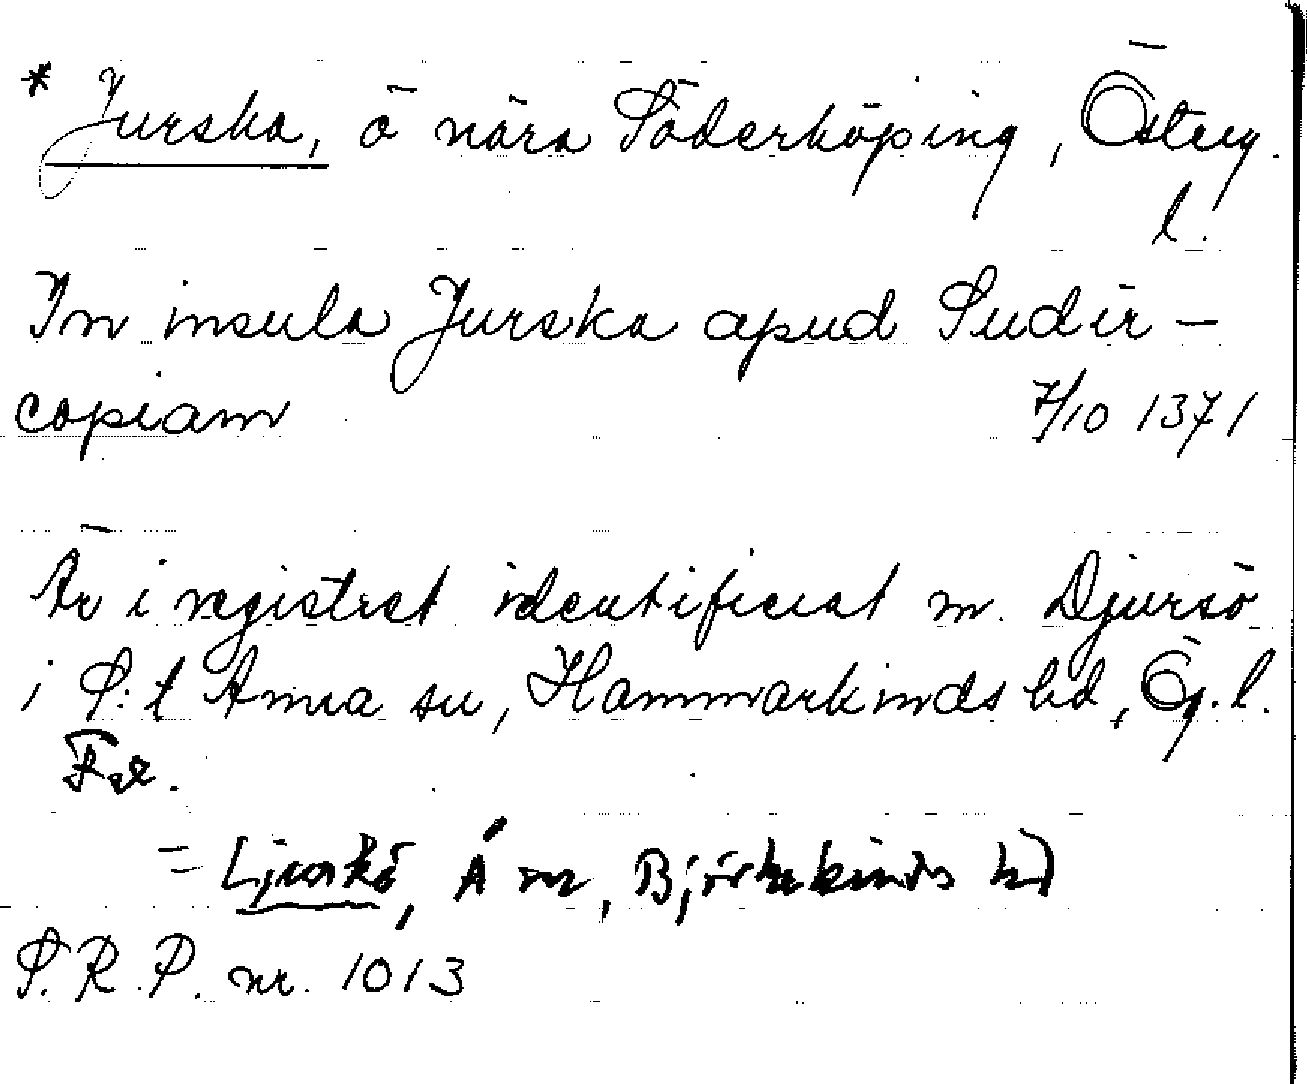 * Jurska, ö nära Söderköping, Österg.
l.
In insula Jurska apud Sudir-
copiam 7/10 1371
Är i registret identifierat m. Djursö
i S:t Anna sn, Hammarkinds hd, Ög.l.
= Ljuskö, Å sn, Björkekinds hd
S.R.P. nr. 1013